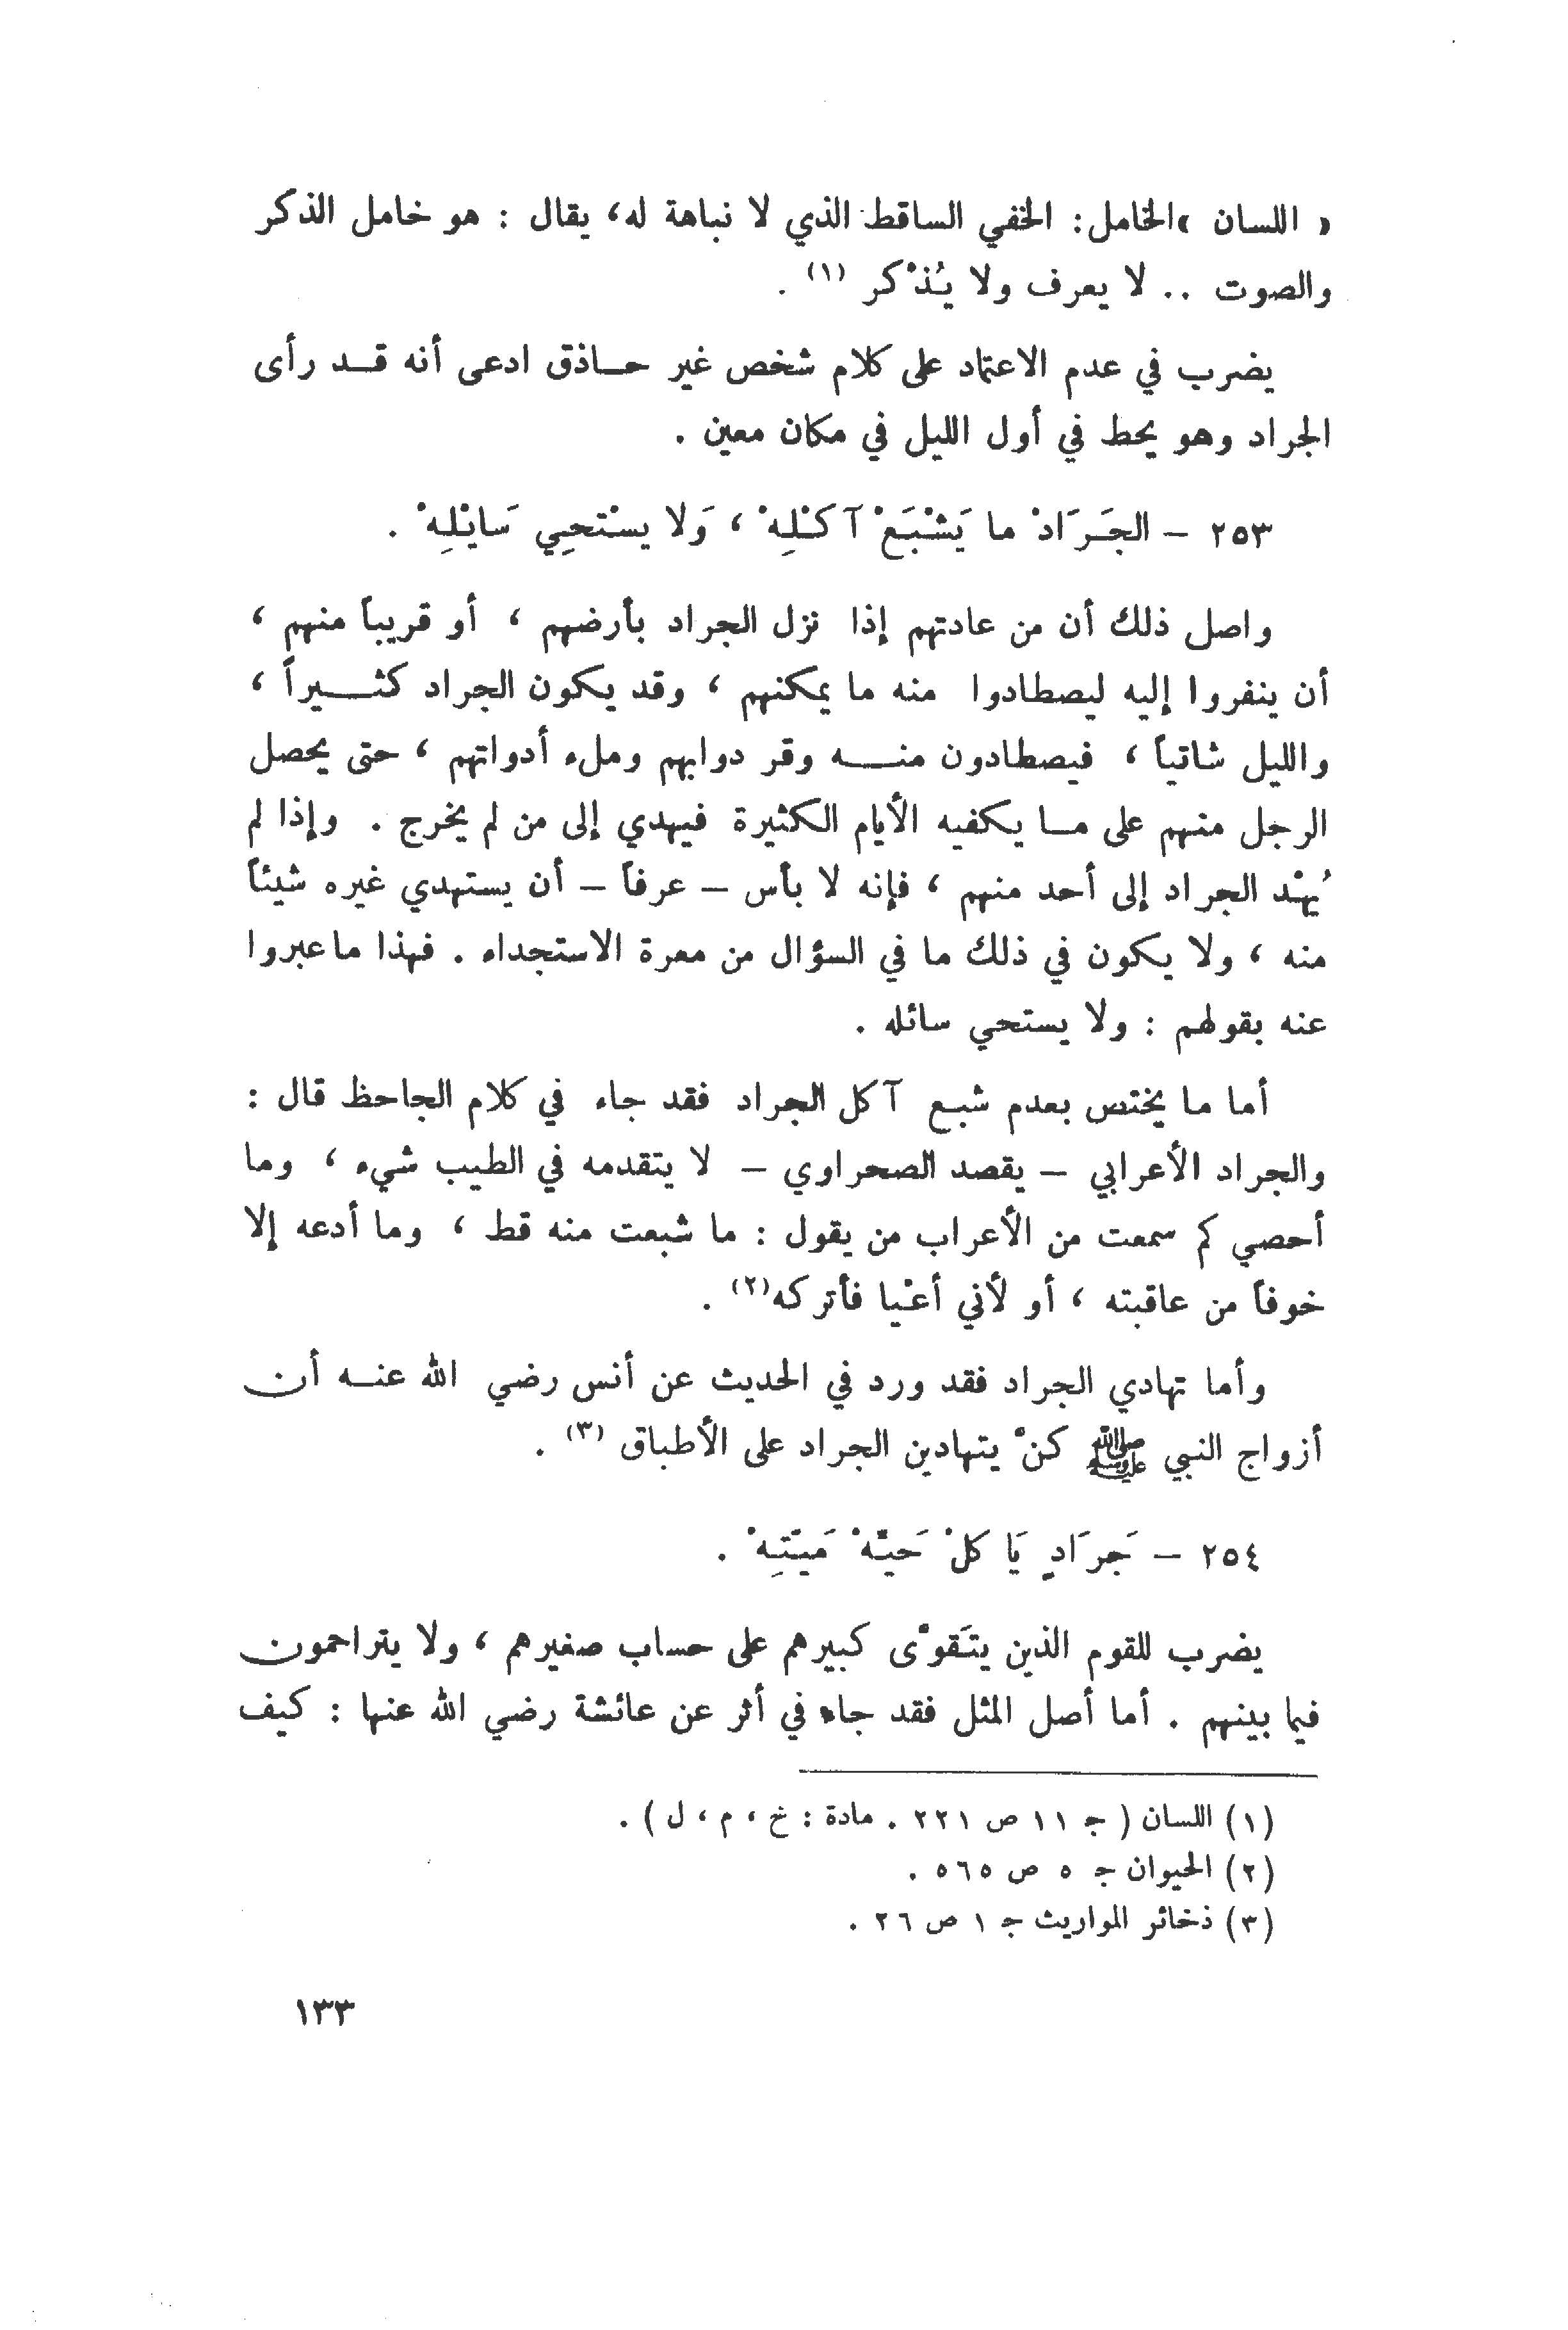 « اللسان » الخامل: الخفي الساقط الذي لا نباهة له، يقال : هو خامل الذكر
والصوت .. لا يعرف ولا يُذْكر (١) .
يضرب في عدم الاعتماد على كلام شخص غير حـاذق ادعى أنه قـد رأى
الجراد وهو يحط في أول الليل في مكان معين .
٢٥٣ – الجَرَادْ ما يَشْبَعْ آكْلِهْ ، وَلا يسْتحِي سَايْلِهْ .
واصل ذلك أن من عادتهم إذا نزل الجراد بأرضهم ، أو قريباً منهم ،
أن ينفروا إليه ليصطادوا منه ما يمكنهم ، وقد يكون الجراد كثـيراً ،
والليل شاتياً ، فيصطادون منـه وقر دوابهم وملء أدواتهم ، حتى يحصل
الرجل منهم على مـا يكفيه الأيام الكثيرة فيهدي إلى من لم يخرج . وإذا لم
يُهْد الجراد إلى أحد منهم ، فإنه لا بأس – عرفاً – أن يستهدي غيره شيئاً
منه ، ولا يكون في ذلك ما في السؤال من معرة الاستجداء . فهذا ما عبروا
عنه بقولهم : ولا يستحي سائله .
أما ما يختص بعدم شبع آكل الجراد فقد جاء في كلام الجاحظ قال :
والجراد الأعرابي – يقصد الصحراوي – لا يتقدمه في الطيب شيء ، وما
أحصي كم سمعت من الأعراب من يقول : ما شبعت منه قط ، وما أدعه إلا
خوفاً من عاقبته ، أو لأني أعْيا فأتركه(٢) .
وأما تهادي الجراد فقد ورد في الحديث عن أنس رضي الله عنـه أن
أزواج النبي ﷺ كنّ يتهادين الجراد على الأطباق (٣) .
٢٥٤ – جَرَادٍ يَا كلْ حَيّهْ مَيّتِهْ .
يضرب للقوم الذين يتَقوّى كبيرهم على حساب صغيرهم ، ولا يتراحمون
فيما بينهم . أما أصل المثل فقد جاء في أثر عن عائشة رضي الله عنها : كيف
(١) اللسان ( جـ ١١ ص ٢٢١ . مادة : خ ، م ، ل ) .
(٢) الحيوان جـ ٥ ص ٥٦٥ .
(٣) ذخائر المواريث جـ ١ ص ٢٦ .
١٣٣